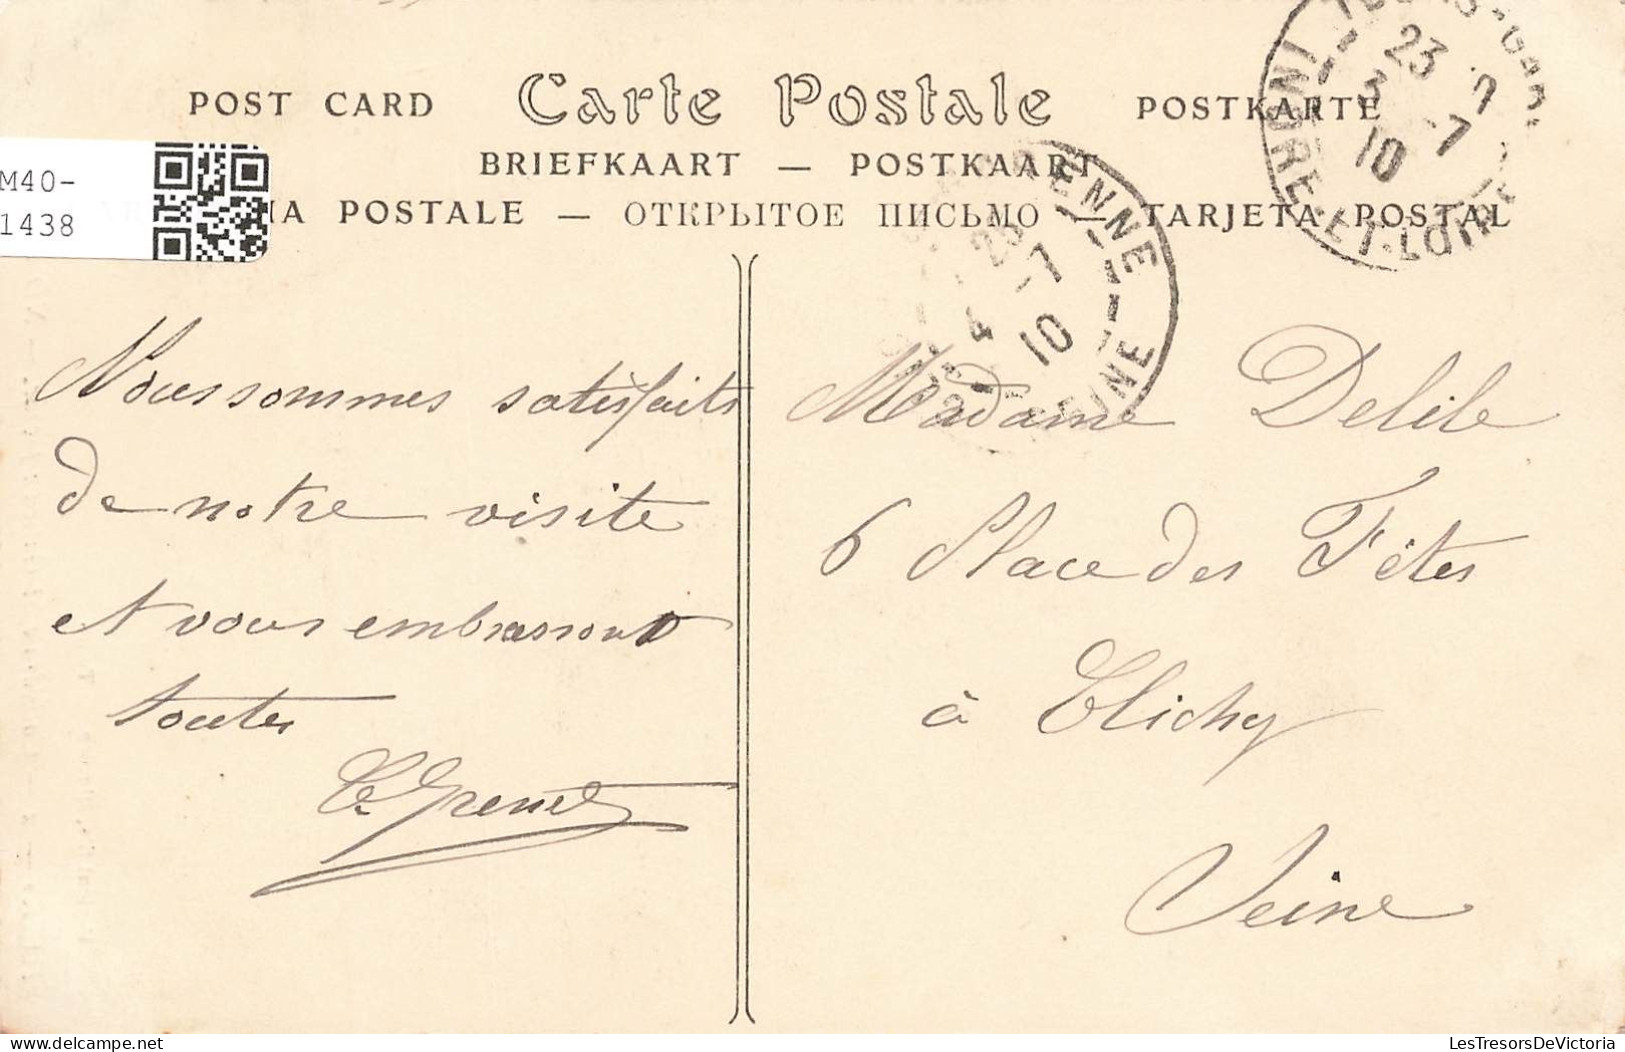 POST CARD Carte Postale POSTKARTE
BRIEFKAART — POSTKAART
POSTALE — ОТКРЫТОЕ ПИСЬМО — TARJETA POSTAL
M40-
1438
23 7
3 -7
10
INDRE-ET-LOIRE
ENNE
4 -7
10
SEINE
Nous sommes satisfaits
de notre visite
et vous embrassons
toutes
Madame Delile
6 Place des Fêtes
à Clichy
Seine
LesTresorsDeVictoria.com